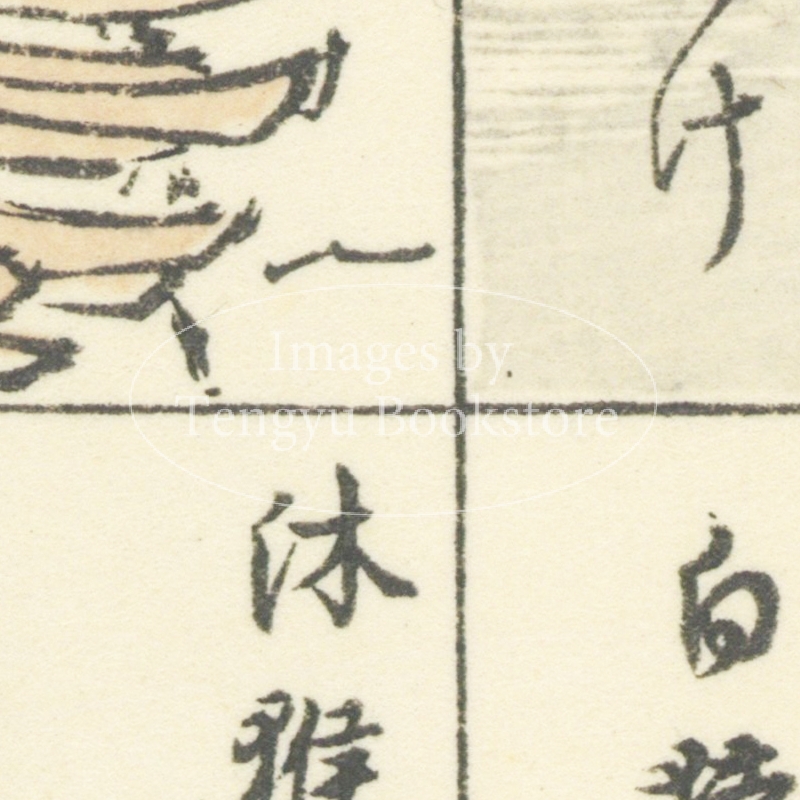 け
一
白
沐猴
Images by
Tengyu Bookstore